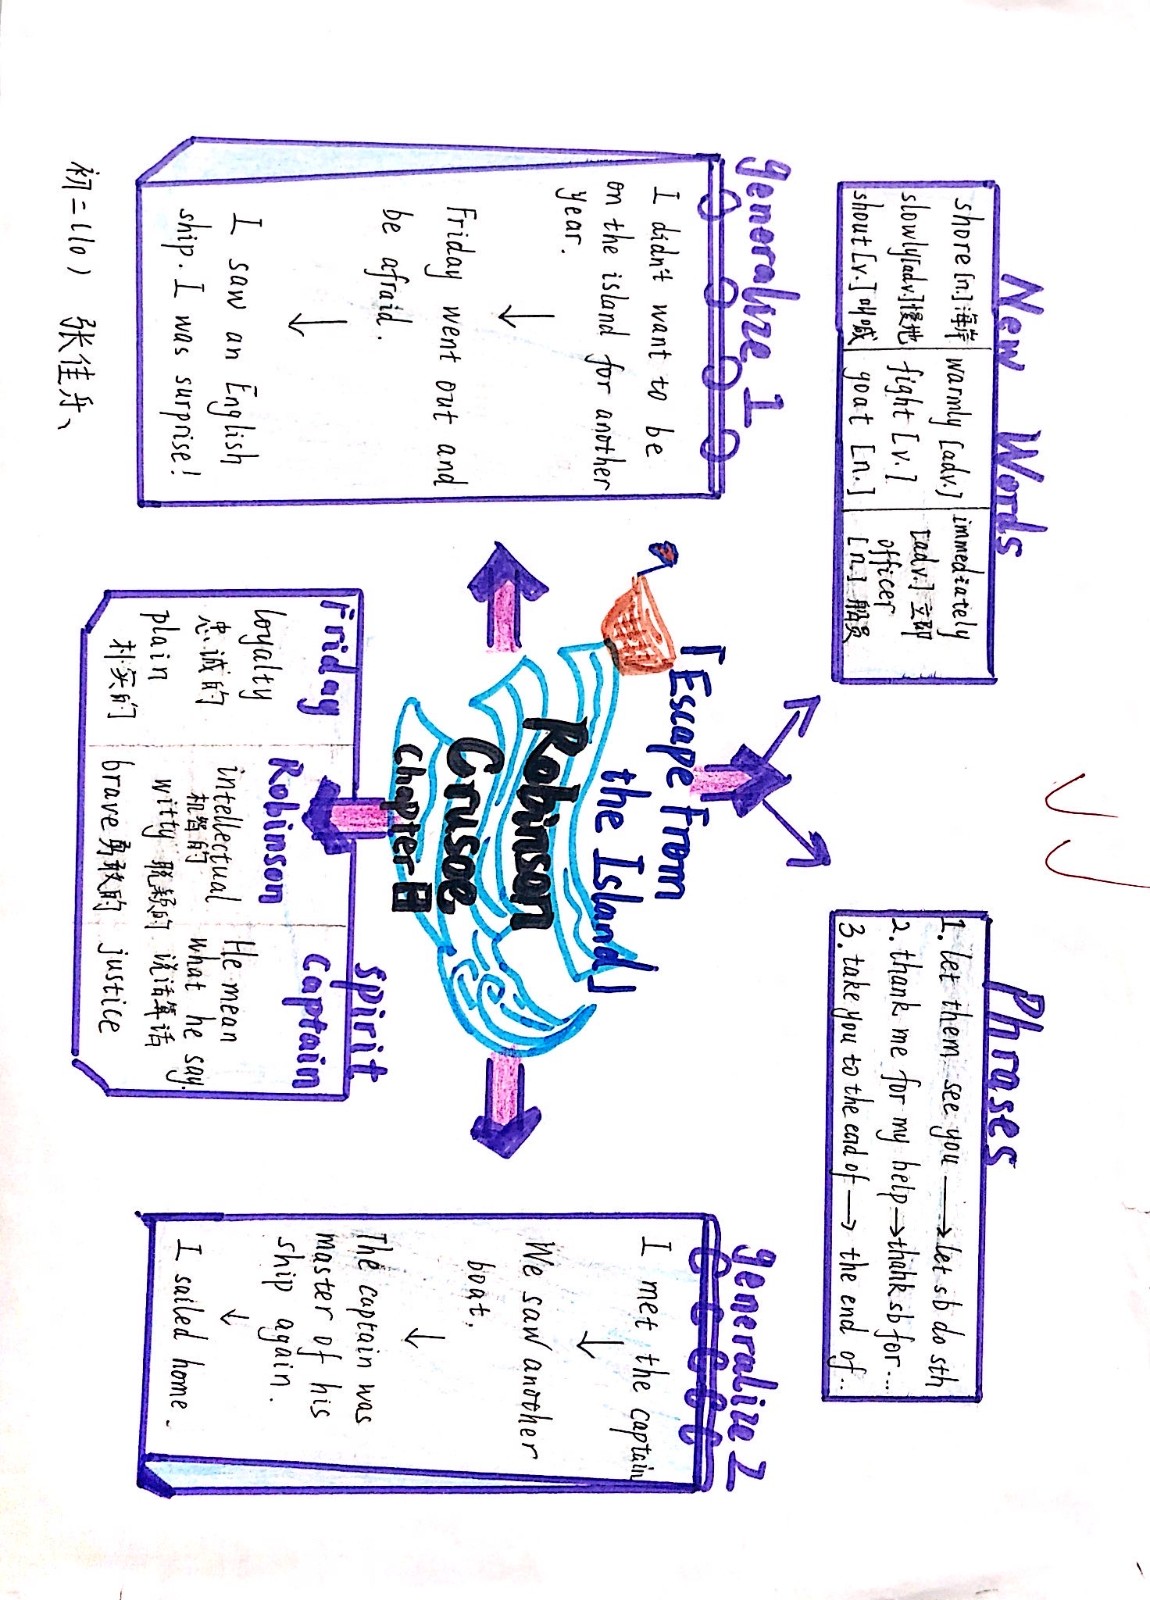 New Words
shore [n.] 海岸
slowly [adv.] 慢地
shout [v.] 叫喊
warmly [adv.]
fight [v.]
goat [n.]
immediately
[adv.] 立即
officer
[n.] 船员
Phrases
1. let them see you → let sb do sth
2. thank me for my help → thank sb for...
3. take you to the end of → the end of..
generalize 1
I didn't want to be
on the island for another
year.
↓
Friday went out and
be afraid.
↓
I saw an English
ship. I was surprise!
「Escape from
the Island」
Robinson
Crusoe
Chapter
generalize 2
I met the captain
↓
We saw another
boat.
↓
The captain was
master of his
ship again.
↓
I sailed home.
Spirit
Friday
loyalty
忠诚的
plain
朴实的
Robinson
intellectual
机智的
witty 脱颖的
brave 勇敢的
Captain
He mean
what he say.
说话算话
justice
初二(10) 张佳乐